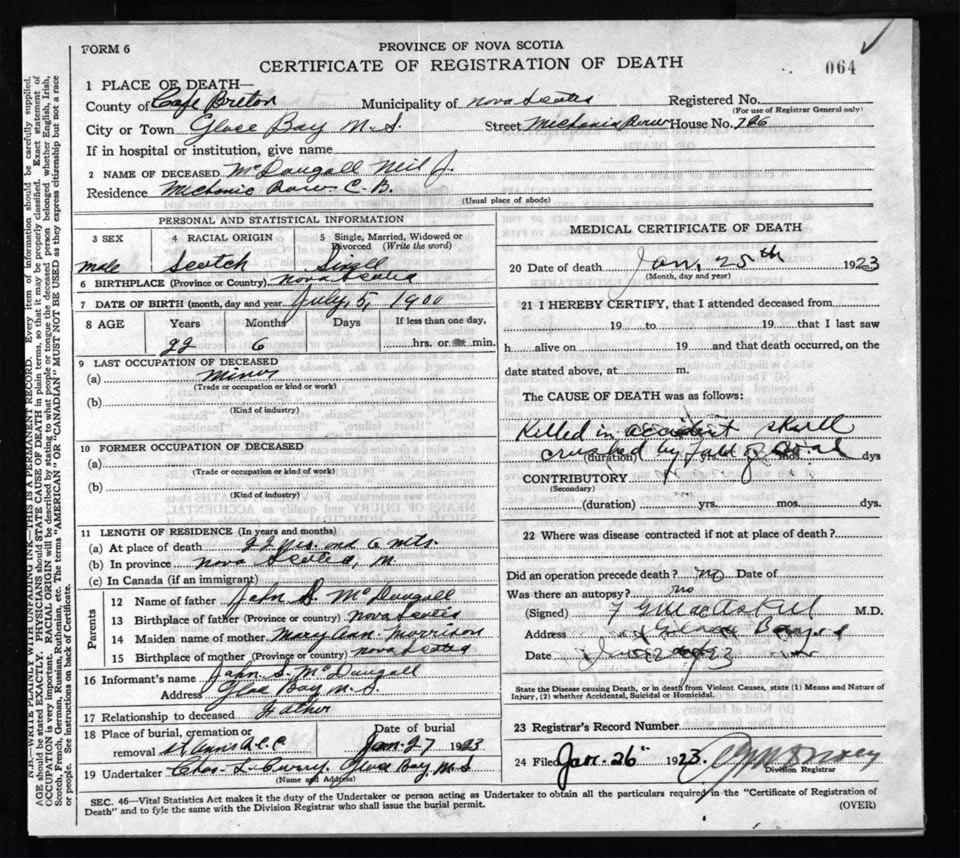 FORM 6
PROVINCE OF NOVA SCOTIA
CERTIFICATE OF REGISTRATION OF DEATH
064
1 PLACE OF DEATH—
County of Cape Breton Municipality of Nova Scotia Registered No.
(For use of Registrar General only)
City or Town Glace Bay N.S. Street Mechanic Row House No. 766
If in hospital or institution, give name
2 NAME OF DECEASED McDougall Neil J.
Residence Mechanic Row C.B.
(Usual place of abode)
PERSONAL AND STATISTICAL INFORMATION
3 SEX 4 RACIAL ORIGIN 5 Single, Married, Widowed or Divorced (Write the word)
male Scotch
6 BIRTHPLACE (Province or Country) Nova Scotia
7 DATE OF BIRTH (month, day and year) July, 5, 1900
8 AGE Years Months Days If less than one day,
22 6 hrs. or min.
9 LAST OCCUPATION OF DECEASED
(a) Miner
(Trade or occupation or kind or work)
(b)
(Kind of industry)
10 FORMER OCCUPATION OF DECEASED
(a)
(Trade or occupation or kind or work)
(b)
(Kind of industry)
11 LENGTH OF RESIDENCE (In years and months)
(a) At place of death 22 yrs. and 6 mts.
(b) In province Nova Scotia
(c) In Canada (if an immigrant)
Parents
12 Name of father John S. McDougall
13 Birthplace of father (Province or country) Nova Scotia
14 Maiden name of mother Mary Ann Morrison
15 Birthplace of mother (Province or country) Nova Scotia
16 Informant's name John S. McDougall
Address Glace Bay N.S.
17 Relationship to deceased Father
18 Place of burial, cremation or Date of burial
removal St Anns Jan. 27 1923
19 Undertaker Chas. L. Curry. Glace Bay N.S
(Name and Address)
MEDICAL CERTIFICATE OF DEATH
20 Date of death Jan. 25th 1923
(Month, day and year)
21 I HEREBY CERTIFY, that I attended deceased from
19 to 19 that I last saw
h alive on 19 and that death occurred, on the
date stated above, at m.
The CAUSE OF DEATH was as follows:
Killed in accident skull
crushed by fall of
(duration) yrs. mos. dys
CONTRIBUTORY
(Secondary)
(duration) yrs. mos. dys.
22 Where was disease contracted if not at place of death?
Did an operation precede death? no Date of
Was there an autopsy? no
(Signed) M.D.
Address
Date
State the Disease causing Death, or in death from Violent Causes, state (1) Means and Nature of
Injury, (2) whether Accidental, Suicidal or Homicidal.
23 Registrar's Record Number
24 Filed Jan. 26 1923.
Division Registrar
SEC. 46—Vital Statistics Act makes it the duty of the Undertaker or person acting as Undertaker to obtain all the particulars required in the "Certificate of Registration of
Death" and to fyle the same with the Division Registrar who shall issue the burial permit.
(OVER)
N.B.—WRITE PLAINLY WITH UNFADING INK—THIS IS A PERMANENT RECORD. Every item of information should be carefully supplied.
AGE should be stated EXACTLY. PHYSICIANS should STATE CAUSE OF DEATH in plain terms, so that it may be properly classified. Exact statement of
OCCUPATION is very important. RACIAL ORIGIN will be described by stating to what people or tongue the deceased person belonged whether English, Irish,
Scotch, French, German, Russian, Ruthenian, etc. The terms "AMERICAN" OR "CANADIAN" MUST NOT BE USED as they express citizenship but not a race
or people. See instructions on back of Certificate.